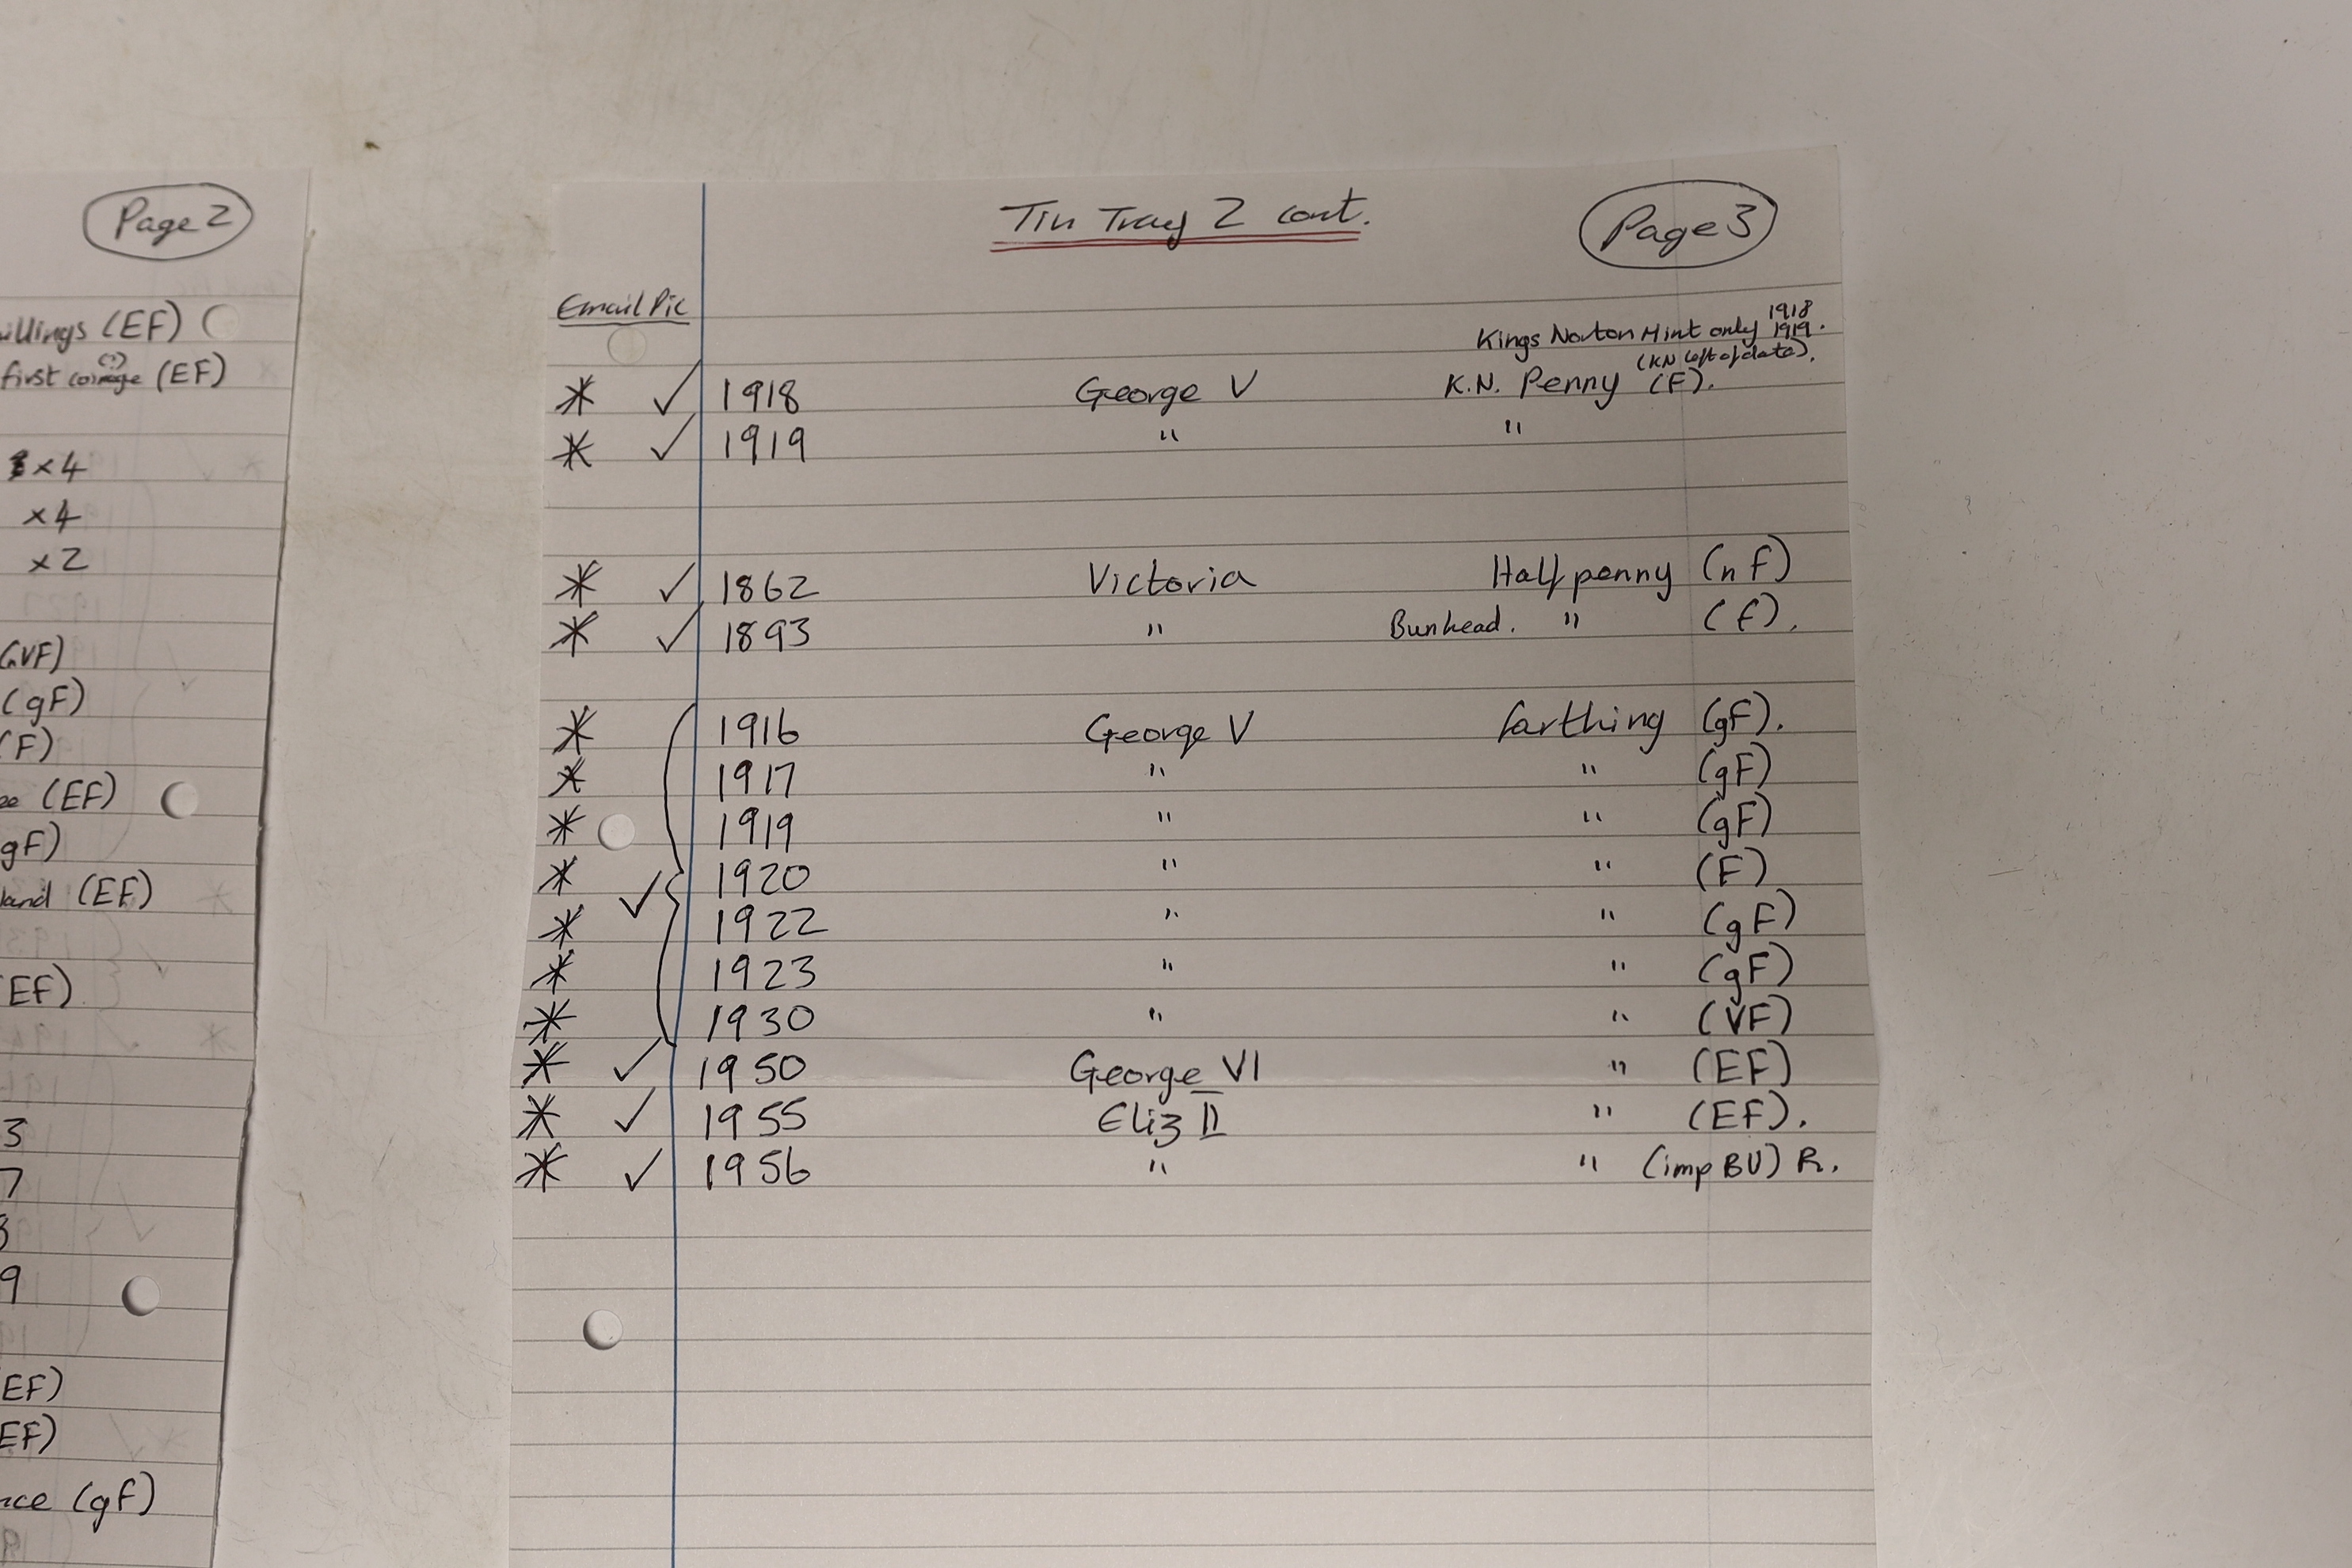 Page 2
illings (EF)
(?)
first coinage (EF)
x 4
x 4
x 2
GVF)
(gF)
(F)
(EF)
gF)
land (EF)
EF)
3
7
3
9
EF)
EF)
nce (gF)
Tin Tray 2 cont.
Page 3
Email Pic
1918
Kings Norton Mint only 1919.
(KN left of date).
* ✓ 1918 George V K.N. Penny (F).
* ✓ 1919 " "
* ✓ 1862 Victoria Half penny (nf)
* ✓ 1893 " Bunhead. " (f).
* 1916 George V farthing (gF).
* 1917 " " (gF)
* 1919 " " (gF)
* 1920 " " (F)
* ✓ 1922 " " (gF)
* 1923 " " (gF)
* 1930 " " (VF)
* ✓ 1950 George VI " (EF)
* ✓ 1955 Eliz II " (EF).
* ✓ 1956 " " (imp BU) R.